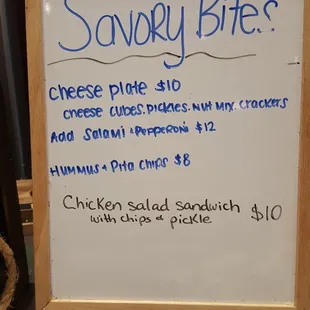 Savory Bites
Cheese plate $10
cheese cubes. pickles. nut mix. crackers
Add Salami & Pepperoni $12
Hummus & Pita chips $8
Chicken salad sandwich $10
with chips & pickle